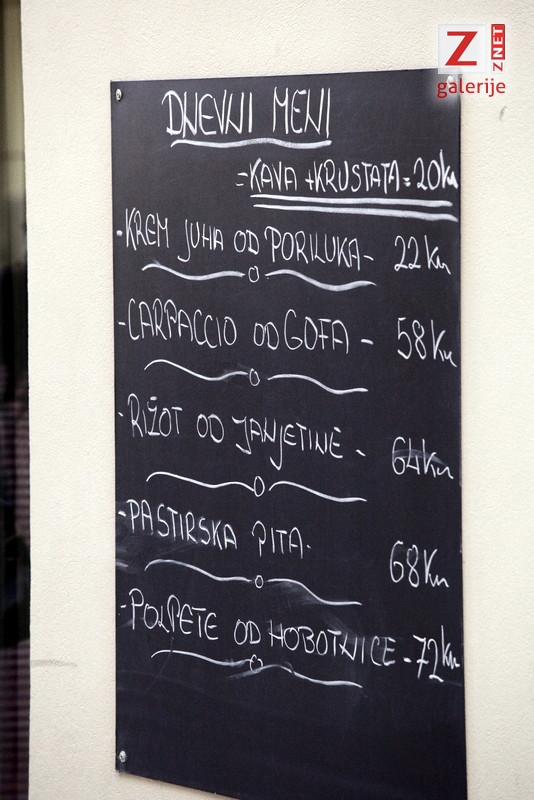 Z ZNET
galerije
DNEVNI MENI
=KAVA +KRUSTATA=20kn
-KREM JUHA OD PORILUKA- 22kn
-CARPACCIO OD GOFA - 58kn
-RIŽOT OD JANJETINE - 64kn
-PASTIRSKA PITA- 68kn
-POLPETE OD HOBOTNICE -72kn